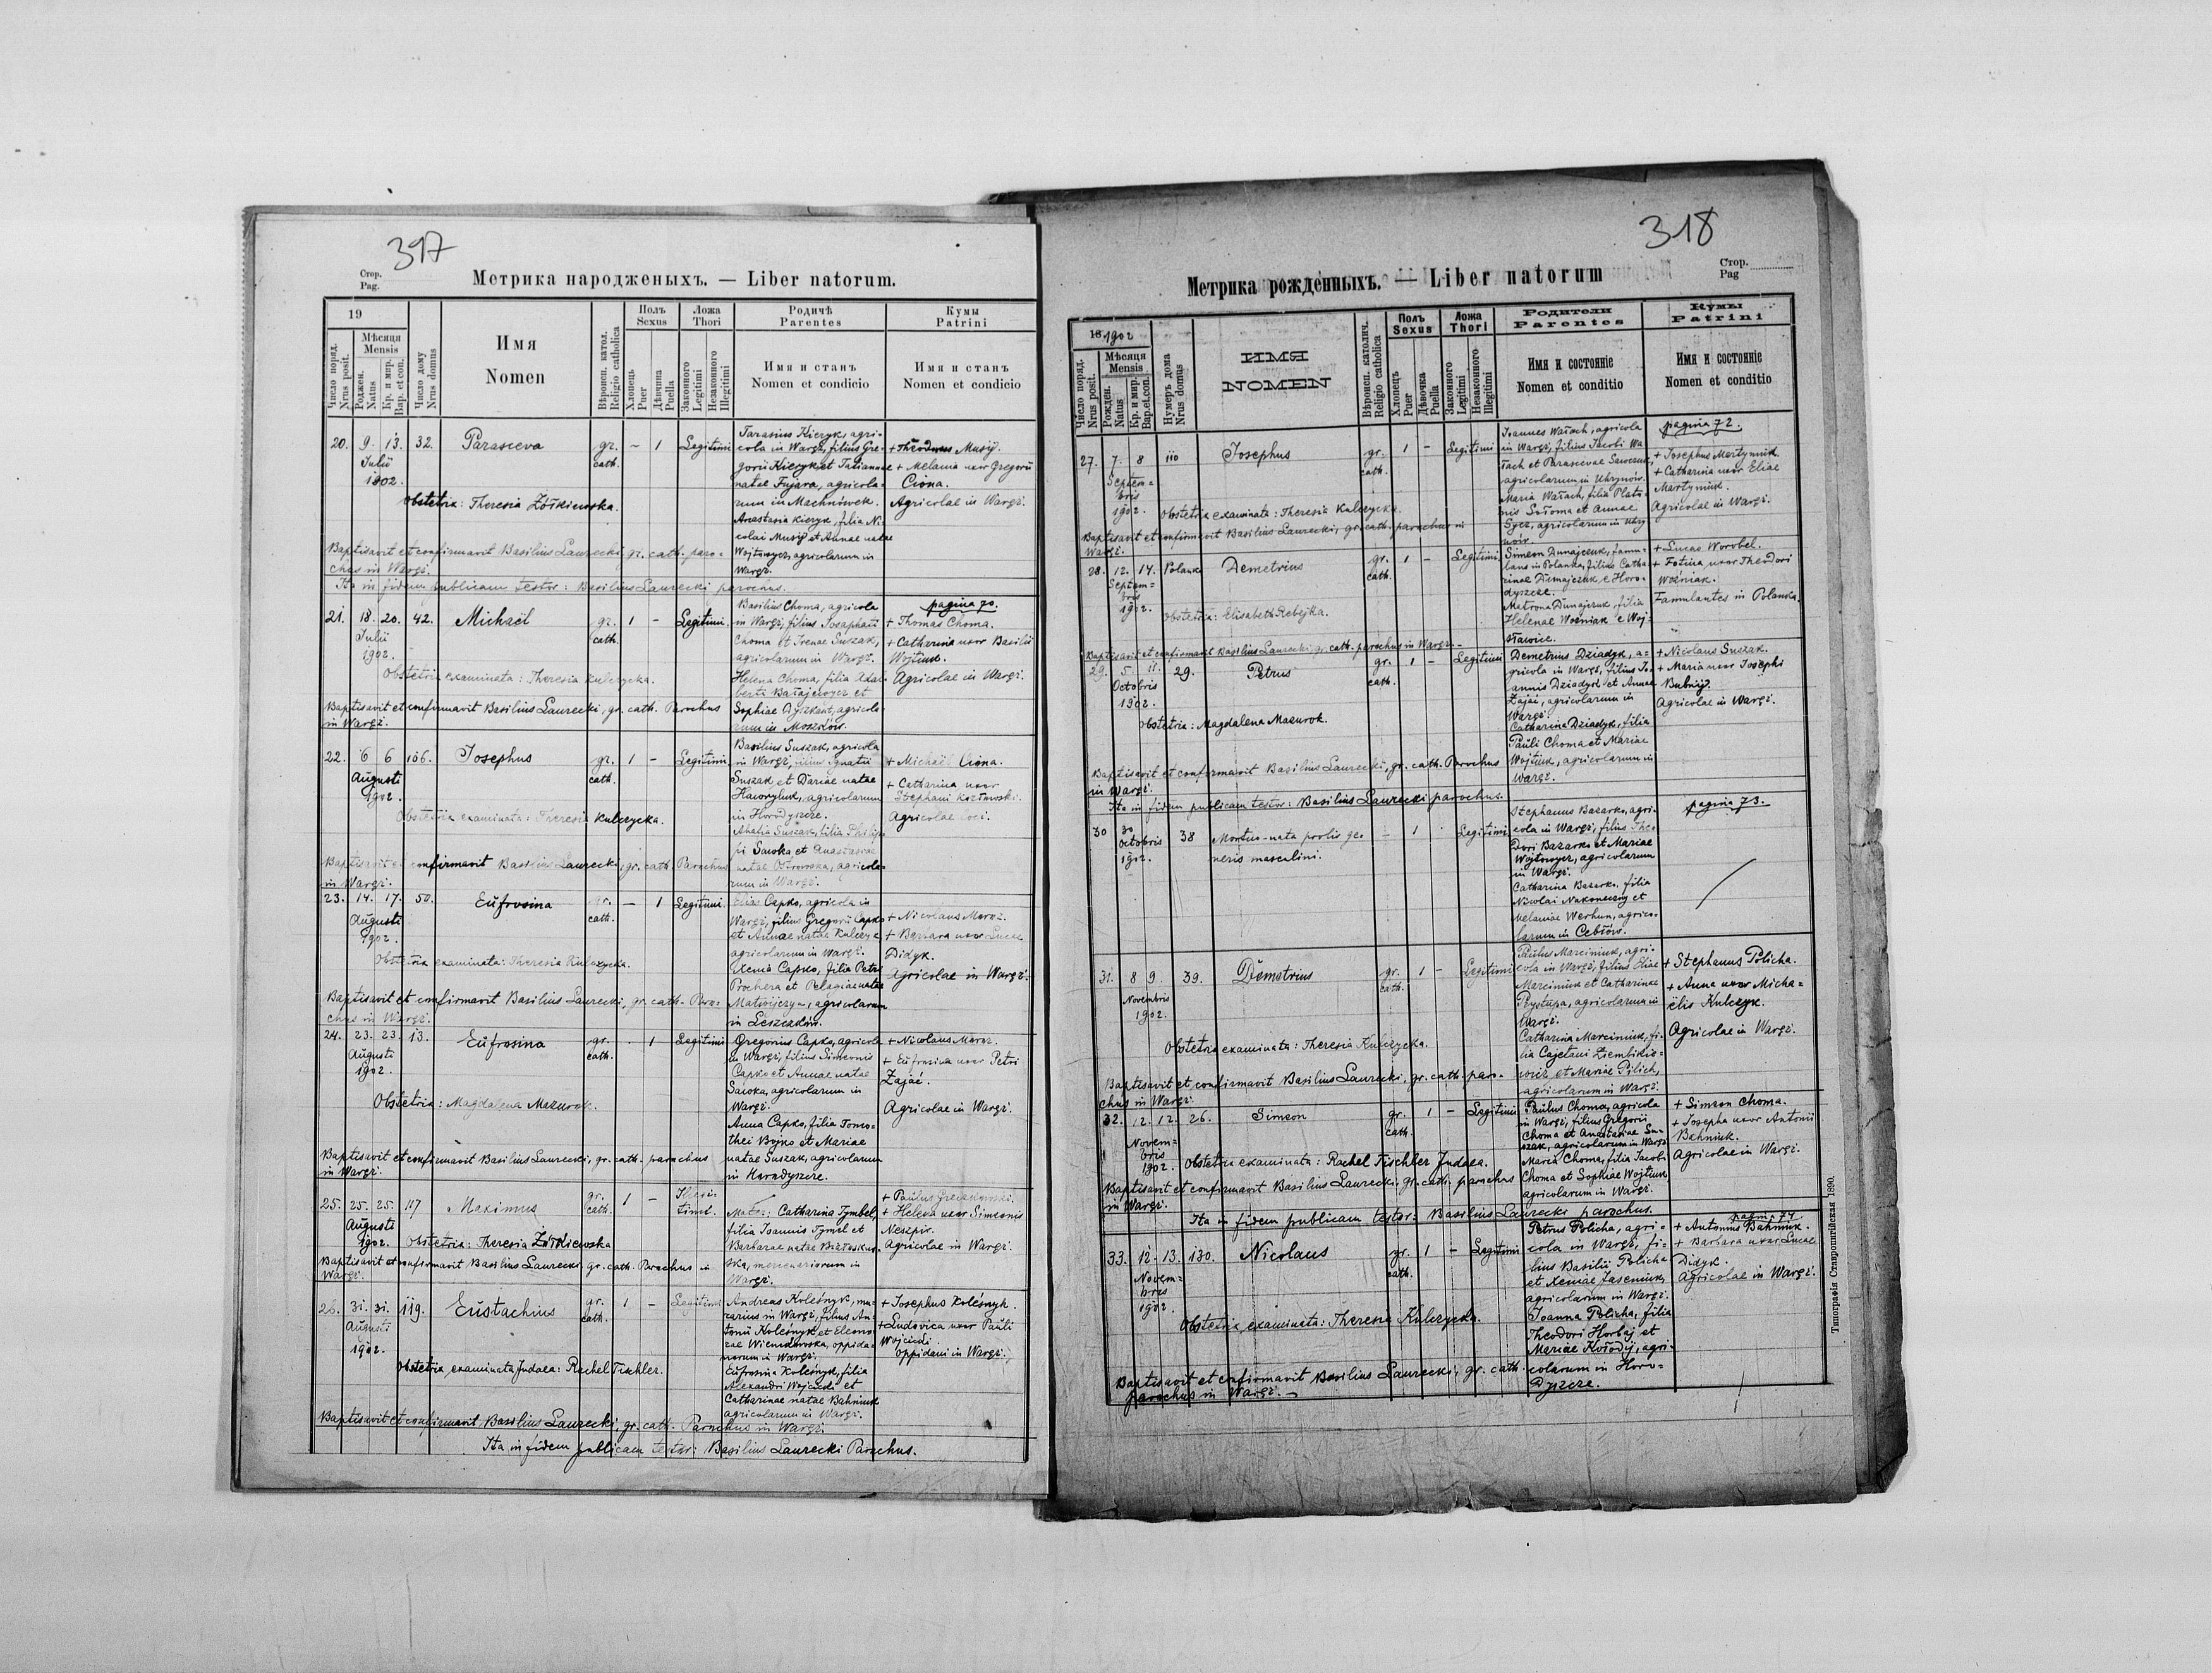 397
Стор.
Pag.
Метрика народженыхъ. — Liber natorum.
19
Число поряд.
Nrus posit.
Мѣсяця
Mensis
Рожден.
Natus
Кр. и мир.
Bap. et con.
Число дому
Nrus domus
Имя
Nomen
Вѣроисп. катол.
Religio catholica
Полъ
Sexus
Хлопець
Puer
Дѣвчина
Puella
Ложа
Thori
Законного
Legitimi
Незаконного
Illegitimi
Родичѣ
Parentes
Имя и станъ
Nomen et condicio
Кумы
Patrini
Имя и станъ
Nomen et condicio
20. 9. 13. 32. Parasceva gr. cath. – 1 Legitimi
Julii
1902.
Tarasius Kieryk, agri-
cola in Waręż, filius Gre-
gorii Kieryk et Tatiannae
natae Fujara, agricola-
rum in Machnówek.
Anastasia Kieryk, filia Ni-
colai Musij et Annae natae
Wojtowycz, agricolarum in
Waręż.
+ Theodorus Musij.
+ Melania uxor Gregorii
Ciona.
Agricolae in Waręż.
Obstetrix: Theresia Żółkiewska.
Baptisavit et confirmavit Basilius Laurecki, gr. cath. paro-
chus in Waręż.
Ita in fidem publicam testor: Basilius Laurecki parochus.
21. 18. 20. 42. Michaël gr. cath. 1 – Legitimi
Julii
1902.
Basilius Choma, agricola
in Waręż, filius Josaphati
Choma et Irenae Suszak,
agricolarum in Waręż.
Helena Choma, filia Adal-
berti
Sophiae
rum in Moszków.
pagina 70.
+ Thomas Choma.
+ Catharina uxor Basilii
Wojtiuk.
Agricolae in Waręż.
Obstetrix examinata: Theresia Kulczycka.
Baptisavit et confirmavit Basilius Laurecki, gr. cath. Parochus
in Waręż.
22. 6 6 106. Josephus gr. cath. 1 – Legitimi
Augusti
1902.
Basilius Suszak, agricola
in Waręż, filius Ignatii
Suszak et Dariae natae
Hawryluk, agricolarum
in Horodyszcze.
Suszak, filia Philip-
pi Sawka et Anastasiae
natae Ostrowska, agricola-
rum in Waręż.
+ Michaël Ciona.
+ Catharina uxor
Stephani Kozłowski.
Agricolae loci.
Obstetrix examinata: Theresia Kulczycka.
Baptisavit et confirmavit Basilius Laurecki, gr. cath. Parochus
in Waręż.
23. 14. 17. 50. Eufrosina gr. cath. – 1 Legitimi
Augusti
1902.
Elias Capko, agricola in
Waręż, filius Gregorii Capko
et Annae natae Kulczyk
agricolarum in Waręż.
Xenia Capko, filia Petri
Prochera et Pelagiae natae
Matwijczyn, agricolarum
in Leszczków.
+ Nicolaus Maroz.
+ Barbara uxor Lucae
Didyk.
Agricolae in Waręż.
Obstetrix examinata: Theresia Kulczycka.
Baptisavit et confirmavit Basilius Laurecki, gr. cath. Paro-
chus in Waręż.
24. 23. 23. 13. Eufrosina gr. cath. · 1 Legitimi
Augusti
1902.
Gregorius Capko, agricola
in Waręż, filius Simeonis
Capko et Annae natae
Sawka, agricolarum in
Waręż.
Anna Capko, filia Timo-
thei Bojko et Mariae
natae Suszak, agricolarum
in Horodyszcze.
+ Nicolaus Maroz.
+ Eufrosina uxor Petri
Zajać.
Agricolae in Waręż.
Obstetrix: Magdalena Mazurok.
Baptisavit et confirmavit Basilius Laurecki, gr. cath. parochus
in Waręż.
25. 25. 25. 117 Maximus gr. cath. 1 – Illegi-
timi.
Augusti
1902.
Mater: Catharina Tymbel,
filia Joannis Tymbel et
Barbarae natae
ska, mercenariorum in
Waręż.
+ Paulus
+ Helena uxor Simeonis
Neszpir.
Agricolae in Waręż.
Obstetrix: Theresia Żółkiewska
Baptisavit et confirmavit Basilius Laurecki gr. cath. Parochus in
Waręż.
26. 31. 31. 119. Eustachius gr. cath. 1 – Legitimi
Augusti
1902.
Andreas Koleśnyk, mu-
rarius in Waręż, filius An-
tonii Koleśnyk et Eleono-
rae oppida-
norum in Waręż.
Eufrosina Koleśnyk, filia
Alexandri Wojcicki et
Catharinae natae Bahniuk
agricolarum in Waręż.
+ Josephus Koleśnyk.
+ Ludovica uxor Pauli
Wojcicki.
Oppidani in Waręż.
Obstetrix examinata Judaea: Rachel Tischler.
Baptisavit et confirmavit Basilius Laurecki, gr. cath. Parochus in Waręż.
Ita in fidem publicam testor: Basilius Laurecki Parochus.
318
Стор.
Pag
Метрика рожденныхъ. — Liber natorum
18 1902
Число поряд.
Nrus posit.
Мѣсяця
Mensis
Рожден.
Natus
Кр. и мир.
Bap. et con.
Нумеръ дома
Nrus domus
ИМЯ
NOMEN
Вѣроисп. католич.
Religio catholica
Полъ
Sexus
Хлопецъ
Puer
Дѣвочка
Puella
Ложа
Thori
Законного
Legitimi
Незаконного
Illegitimi
Родители
Parentes
Имя и состояніе
Nomen et conditio
Кумы
Patrini
Имя и состояніе
Nomen et conditio
27. 7. 8 110 Josephus gr. cath. 1 – Legitimi
Septem=
bris
1902.
Joannes Wałach, agricola
in Waręż, filius Jacobi Wa
łach et Parascevae Sawczuk,
agricolarum in Uhrynów.
Maria Wałach, filia Plato-
nis Sołoma et Annae
Sycz, agricolarum in Uhry
nów.
pagina 72.
+ Josephus Martyniuk
+ Catharina uxor Eliae
Martyniuk.
Agricolae in Waręż.
Obstetrix examinata: Theresia Kulczycka.
Baptisavit et confirmavit Basilius Laurecki, gr. cath. parochus in
Waręż.
28. 12. 14. Polanka Demetrius gr. cath. 1 – Legitimi
Septem=
bris
1902.
Simeon Dunajczuk, famu-
lans in Polanka, filius Catha-
rinae Dunajczuk e Horo-
dyszcze.
Matrona Dunajczuk, filia
Helenae Woźniak e Woj-
sławice.
+ Lucas Worobel.
+ Fotina uxor Theodori
Woźniak.
Famulantes in Polanka.
Obstetrix: Elisabeth Rebejka.
Baptisavit et confirmavit Basilius Laurecki, gr. cath. parochus in Waręż.
29. 5. 11. 29. Petrus gr. cath. 1 – Legitimi
Octobris
1902.
Demetrius Dziadyk, a-
gricola in Waręż, filius Jo-
annis Dziadyk et Annae
Zając, agricolarum in
Waręż.
Catharina Dziadyk, filia
Pauli Choma et Mariae
Wojtiuk, agricolarum in
Waręż.
+ Nicolaus Suszak.
+ Maria uxor Josephi
Bubnij.
Agricolae in Waręż.
Obstetrix: Magdalena Mazurok.
Baptisavit et confirmavit Basilius Laurecki, gr. cath. Parochus
in Waręż.
Ita in fidem publicam testor: Basilius Laurecki parochus.
30 30 38 Mortuo-nata prolis ge-
neris masculini. – 1 Legitimi
Octobris
1902.
Stephanus Bazarko, agri-
cola in Waręż, filius Theo-
dori Bazarko et Mariae
Wojtowycz, agricolarum
in Waręż.
Catharina Bazarko, filia
Nicolai Nakonecznyj et
Melaniae Werhun, agrico-
larum in Cebłów.
pagina 73.
31. 8 9. 39. Demetrius gr. cath. 1 – Legitimi
Novembris
1902.
Paulus Marciniuk, agri-
cola in Waręż, filius Eliae
Marciniuk et Catharinae
Prystupa, agricolarum in
Waręż.
Catharina Marciniuk, fi-
lia Cajetani Ziembikie-
wicz et Mariae Pilich,
agricolarum in Waręż.
+ Stephanus Policha.
+ Anna uxor Micha=
ëlis Kulczyk.
Agricolae in Waręż.
Obstetrix examinata: Theresia Kulczycka.
Baptisavit et confirmavit Basilius Laurecki, gr. cath. paro-
chus in Waręż.
32. 12. 12. 26. Simeon gr. cath. 1 – Legitimi
Novem=
bris
1902.
Paulus Choma, agricola
in Waręż, filius Gregorii
Choma et Anastasiae Su-
szak, agricolarum in Waręż.
Maria Choma, filia Jacobi
Choma et Sophiae Wojtiuk,
agricolarum in Waręż.
+ Simeon Choma.
+ Josepha uxor Antonii
Bahniuk.
Agricolae in Waręż.
Obstetrix examinata: Rachel Tischler Judaea.
Baptisavit et confirmavit Basilius Laurecki, gr. cath. parochus
in Waręż.
Ita in fidem publicam testor: Basilius Laurecki parochus.
33. 12 - 13. 130. Nicolaus gr. cath. 1 – Legitimi
Novem=
bris
1902.
Petrus Policha, agri-
cola in Waręż, fi-
lius Basilii Policha
et Xeniae Jaseniuk,
agricolarum in Waręż.
Joanna Policha, filia
Theodori Horbaj et
Mariae Kołodij, agri-
colarum in Horo-
dyszcze.
pagina 74
+ Antonius Bahniuk.
+ Barbara uxor Lucae
Didyk.
Agricolae in Waręż.
Obstetrix examinata: Theresia Kulczycka.
Baptisavit et confirmavit Basilius Laurecki, gr. cath.
parochus in Waręż. –
Типографія Ставропигійская 1890.